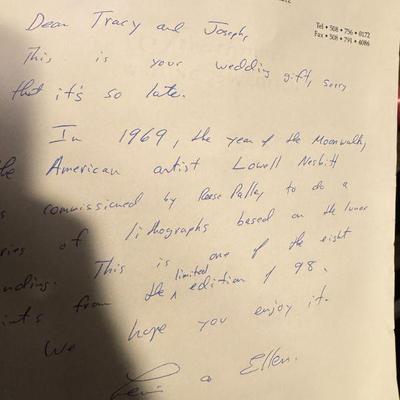 Tel • 508 • 756 • 0172
Fax • 508 • 791 • 6086
Dear Tracy and Joseph,
This is your wedding gift, sorry
that it's so late.
In 1969, the year of the Moonwalk,
the American artist Lowell Nesbitt
commissioned by Reese Palley to do a
of lithographs based on the lunar
This is one of the eight
from the limited edition of 98.
We hope you enjoy it.
& Ellen.